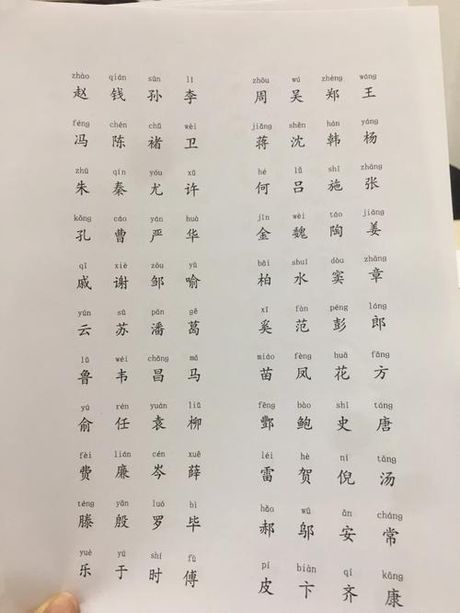 zhào qián sūn lǐ zhōu wú zhèng wáng
赵 钱 孙 李 周 吴 郑 王
féng chén chǔ wèi jiǎng shěn hán yáng
冯 陈 褚 卫 蒋 沈 韩 杨
zhū qín yóu xǔ hé lǚ shī zhāng
朱 秦 尤 许 何 吕 施 张
kǒng cáo yán huà jīn wèi táo jiāng
孔 曹 严 华 金 魏 陶 姜
qī xiè zōu yú bǎi shuǐ dòu zhāng
戚 谢 邹 喻 柏 水 窦 章
yún sū pān gě xī fàn péng láng
云 苏 潘 葛 奚 范 彭 郎
lǔ wéi chāng mǎ miáo fèng huā fāng
鲁 韦 昌 马 苗 凤 花 方
yú rén yuán liǔ fēng bào shǐ táng
俞 任 袁 柳 酆 鲍 史 唐
fèi lián cén xuē léi hè ní tāng
费 廉 岑 薛 雷 贺 倪 汤
téng yīn luó bì hǎo wū ān cháng
滕 殷 罗 毕 郝 邬 安 常
yuè yú shí fù pí biàn qí kāng
乐 于 时 傅 皮 卞 齐 康